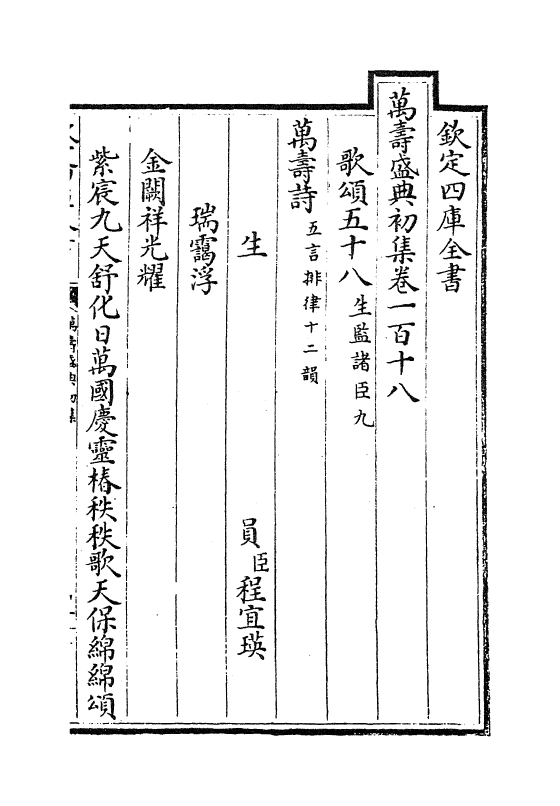 欽定四庫全書
萬壽盛典初集卷一百十八
歌頌五十八生監諸臣九
萬壽詩五言排律十二韻
生員臣程宜瑛
瑞靄浮
金闕祥光耀
紫宸九天舒化日萬國慶靈椿秩秩歌天保綿綿頌
萬壽盛典初集